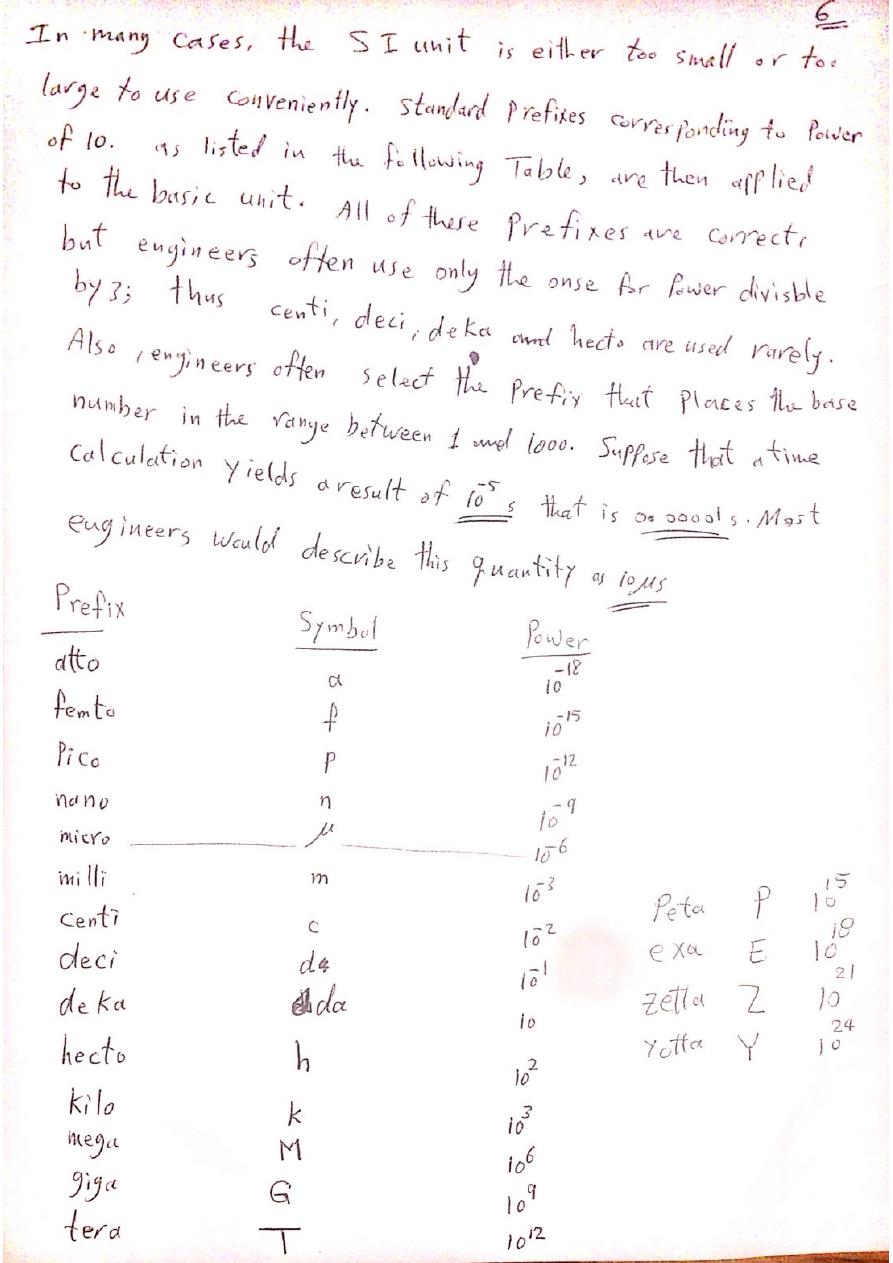 6
In many cases, the SI unit is either too small or too
large to use conveniently. Standard Prefixes corresponding to Power
of 10. as listed in the following Table, are then applied
to the basic unit. All of these Prefixes are correct,
but engineers often use only the onse for Power divisble
by 3; thus centi, deci, deka and hecto are used rarely.
Also, engineers often select the Prefix that places the base
number in the range between 1 and 1000. Suppose that a time
Calculation yields a result of 10⁻⁵ s that is 0.00001 s. Most
engineers would describe this quantity as 10 μs
Prefix Symbol Power
atto a 10⁻¹⁸
femto f 10⁻¹⁵
Pico P 10⁻¹²
nano n 10⁻⁹
micro μ 10⁻⁶
milli m 10⁻³
centi c 10⁻²
deci 10⁻¹
deka da 10
hecto h 10²
kilo k 10³
mega M 10⁶
giga G 10⁹
tera T 10¹²
Peta P 10¹⁵
exa E 10¹⁸
zetta Z 10²¹
Yotta Y 10²⁴